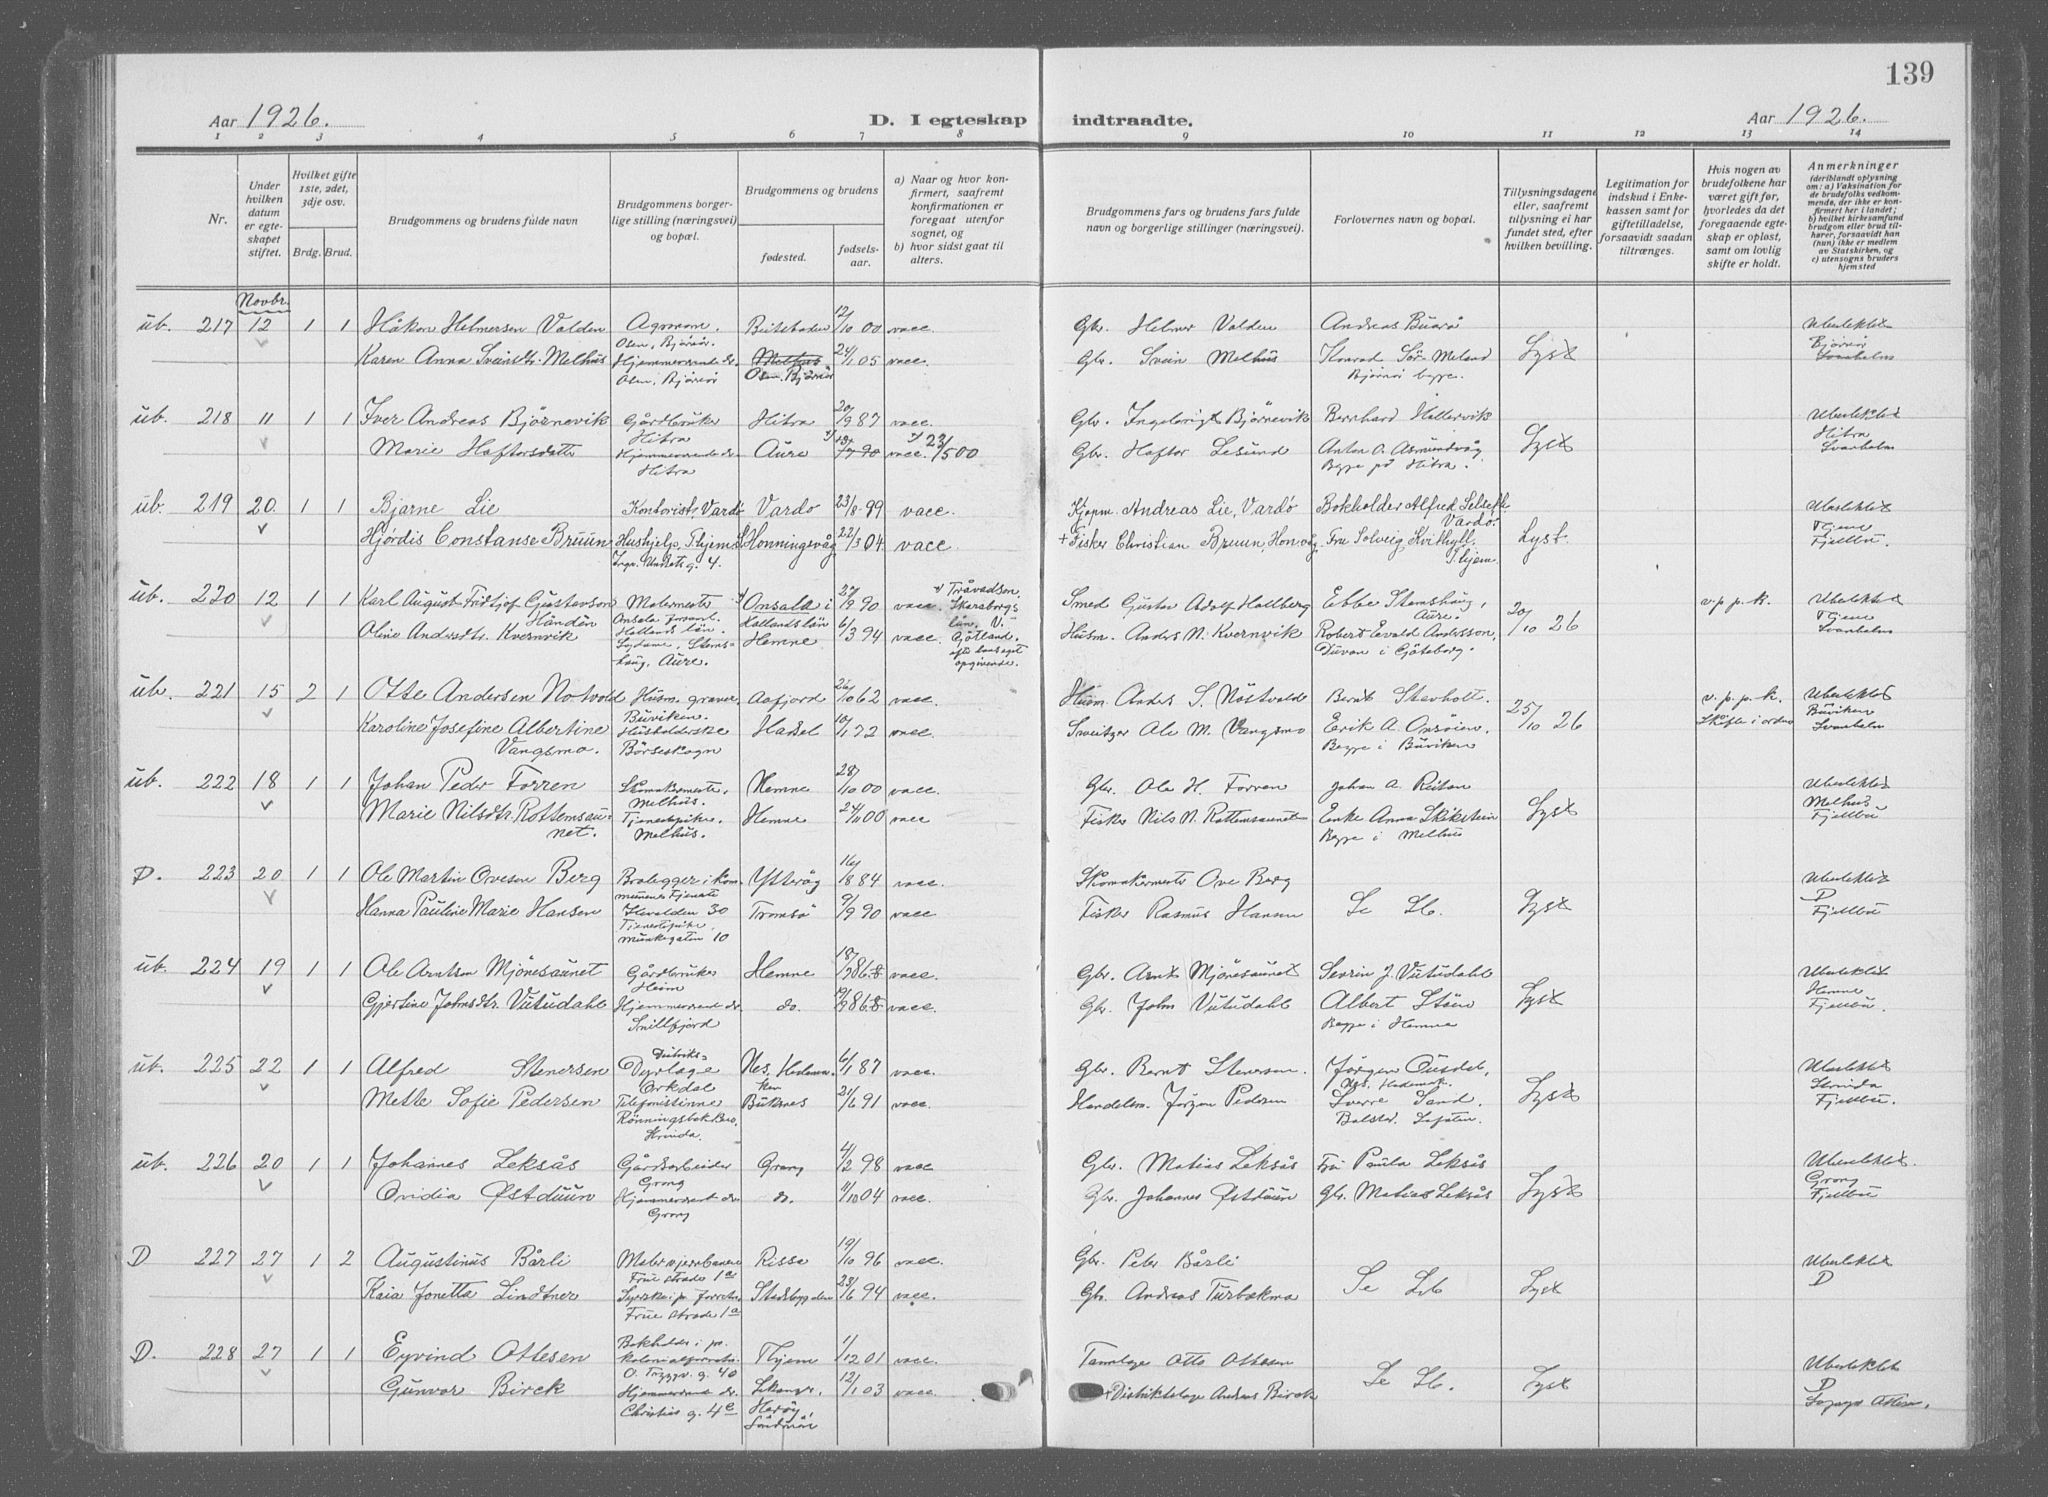 139
Aar 1926.
D. I egteskap indtraadte.
Aar 1926.
1 2 3 4 5 6 7 8 9 10 11 12 13 14
Nr.
Under hvilken datum er egteskapet stiftet.
Hvilket gifte 1ste, 2det, 3dje osv.
Brdg. Brud.
Brudgommens og brudens fulde navn
Brudgommens borgerlige stilling (næringsvei) og bopæl.
Brudgommens og brudens
fødested.
fødselsaar.
a) Naar og hvor konfirmert, saafremt konfirmationen er foregaat utenfor sognet, og
b) hvor sidst gaat til alters.
Brudgommens fars og brudens fars fulde navn og borgerlige stillinger (næringsvei).
Forlovernes navn og bopæl.
Tillysningsdagene eller, saafremt tillysning ei har fundet sted, efter hvilken bevilling.
Legitimation for indskud i Enkekassen samt for giftetilladelse, forsaavidt saadan tiltrænges.
Hvis nogen av brudefolkene har været gift før, hvorledes da det foregaaende egteskap er opløst, samt om lovlig skifte er holdt.
Anmerkninger
(deriblandt oplysning om: a) Vaksination for de brudefolks vedkommende, der ikke er konfirmert her i landet; b) hvilket kirkesamfund brudgom eller brud tilhører, forsaavidt han (hun) ikke er medlem av Statskirken, og c) utensogns bruders hjemsted
Novbr.
ub. 217 12 1 1 Håkon Helmersen Valden Agronom. Osen, Bjørnør. Beitstaden 12/10 00 vacc. Gbr. Helmer Valden Andreas Buarø Ubeslektet Bjørnør Svanholm
Karen Anna Sveinsdtr. Melhus Hjemmeværende dr. Osen, Bjørnør Melhus Osen, Bjørnør 24/1 05 vacc. Gbr. Svein Melhus Konrad Sør-Meland Bjørnør begge. Lyst
ub. 218 11 1 1 Iver Andreas Bjørnevik Gårdbruker Hitra Hitra 20/9 87 vacc. Gbr. Ingebrigt Bjørnevik Bernhard Hallervik Ubeslektet Hitra Svanholm
Marie Haftorsdatter Hjemmeværende dr. Hitra Aure vacc. 23/5 00 Gbr. Haftor Lesund Anton A. Asmundvåg Begge på Hitra. Lyst
ub. 219 20. 1 1 Bjarne Lie Kontorist, Vardø Vardø 23/8 99 vacc. Kjøpm. Andreas Lie, Vardø Bokholder Alfred Vardø. Ubeslektet Thjem Fjellbu.
Hjørdis Constanse Bruun Hushjelp, Thjem Honningsvåg 22/3 04 vacc. + Fisker Christian Bruun, Honvåg. Fru Solveig Kvithyll. Thjem. Lyst.
ub. 220 12 1 1 Karl August Fridtjof Gustavson Händén Malermester Onsala forsaml. Hallands län. Onsala i Hallands län 27/9 90 vacc. Tråvadsen, Skaraborgs län, V. Götland, efter opgivende. Smed Gustav Adolf Hallberg Ebbe Stemshaug, Aure. 20/10 26 v. p. p. k. Ubeslektet Thjem Svanholm
Oline Andersdtr. Kvernvik Sydame, Stemshaug, Aure. Hemne 6/3 94 vacc. Husm. Anders N. Kvernvik Robert Evald Andersson, Duvan i Göteborg.
ub. 221 15 2 1 Otte Andersen Notvold Husm. graver, Buviken. Aafjord 26/10 62 vacc. Husm. Anders S. Nöstvolde Bernt Stavholt. 25/10 26 v. p. p. k. Skifte i orden Ubeslektet Buviken Svanholm
Karoline Josefine Albertine Vangsmo. Husholderske Börseskogn Hadsel 10/1 72 vacc. Sveitzer Ole M. Vangsmo Eerik A. Onsøien. Begge i Buviken
ub. 222 18 1 1 Johan Peder Forren Skomakermester, Melhus. Hemne 28/10 00 vacc. Gbr. Ole H. Forren Johan A. Reitan Ubeslektet Melhus Fjellbu
Marie Nilsdtr. Rottemsaunet. Tjenestepike. Melhus. Hemne 24/11 00 vacc Fisker Nils N. Rottemsaunet Enke Anna Skikstein Begge i Melhus Lyst
D. 223 20 1 1 Ole Martin Ovesen Berg Brolegger i kommunens tjeneste Ytterøy 16/8 84 vacc. Skomakermester Ove Berg Ubeslektet D Fjellbu
Hanna Pauline Marie Hansen Tjenestepike, Munkegaten 10 Tromsø 9/9 90 vacc Fisker Rasmus Hansen Se Lb. Lyst
ub. 224 19 1 1 Ole Arntsen Mjønesaunet Gårdbruker Heim Hemne vacc. Gbr. Arnt Mjønesaunet Sevrin J. Vutudahl Ubeslektet Hemne Fjellbu.
Gjertine Johnsdtr. Vutudahl Hjemmeværende dr. Snillfjord do. vacc. Gbr. John Vutudahl Albert Stöen Begge i Hemne Lyst
ub. 225 22 1 1 Alfred Stenersen Distriks- Dyrlæge Orkdal Nes, Hedemarken 6/1 87 vacc. Gbr. Bernt Stenersen. Jørgen Ousdal, Nes. Hedemark. Ubeslektet Strinda Fjellbu.
Mette Sofie Pedersen Telefonistinne Rönningsbakken, Strinda. Buksnes 21/6 91 vacc. Handelsm. Jørgen Pedersen Sverre Sand, Balstad. Lofoten. Lyst
ub. 226 20 1 1 Johannes Leksås Gårdsarbeider Grong Grong 4/2 98 vacc Gbr. Matias Leksås Fru Paula Leksås Ubeslektet. Grong Fjellbu
Ovidia Østduun Hjemmeværende dr. Grong do. 11/10 04 vacc. Gbr. Johannes Østduun Gbr. Matias Leksås Lyst
D 227 27 1 2 Augustinus Bårli Maler v jernbanen Frue strade 1a Rissa 19/10 96 vacc. Gbr. Peter Bårli Ubeslektet D
Kaia Jonetta Lindtner Syerske i p. forretn. Frue strade 1a Stadsbygden 23/6 94 vacc. Gbr. Andreas Turbekmo Se Lb Lyst
D. 228 27 1 1 Eyvind Ottesen Bokholder i pr. kolonialforretn. O. Tryggv. g. 40 Thjem 1/12 01 vacc. Tannlæge Otto Ottesen Ubeslektet D
Gunvor Birck Hjemmeværende dr. Christies g. 4c Lekanger, Herøy, Søndmør 12/1 03 vacc + Distriktslæge Andreas Birck Se Lb. Lyst